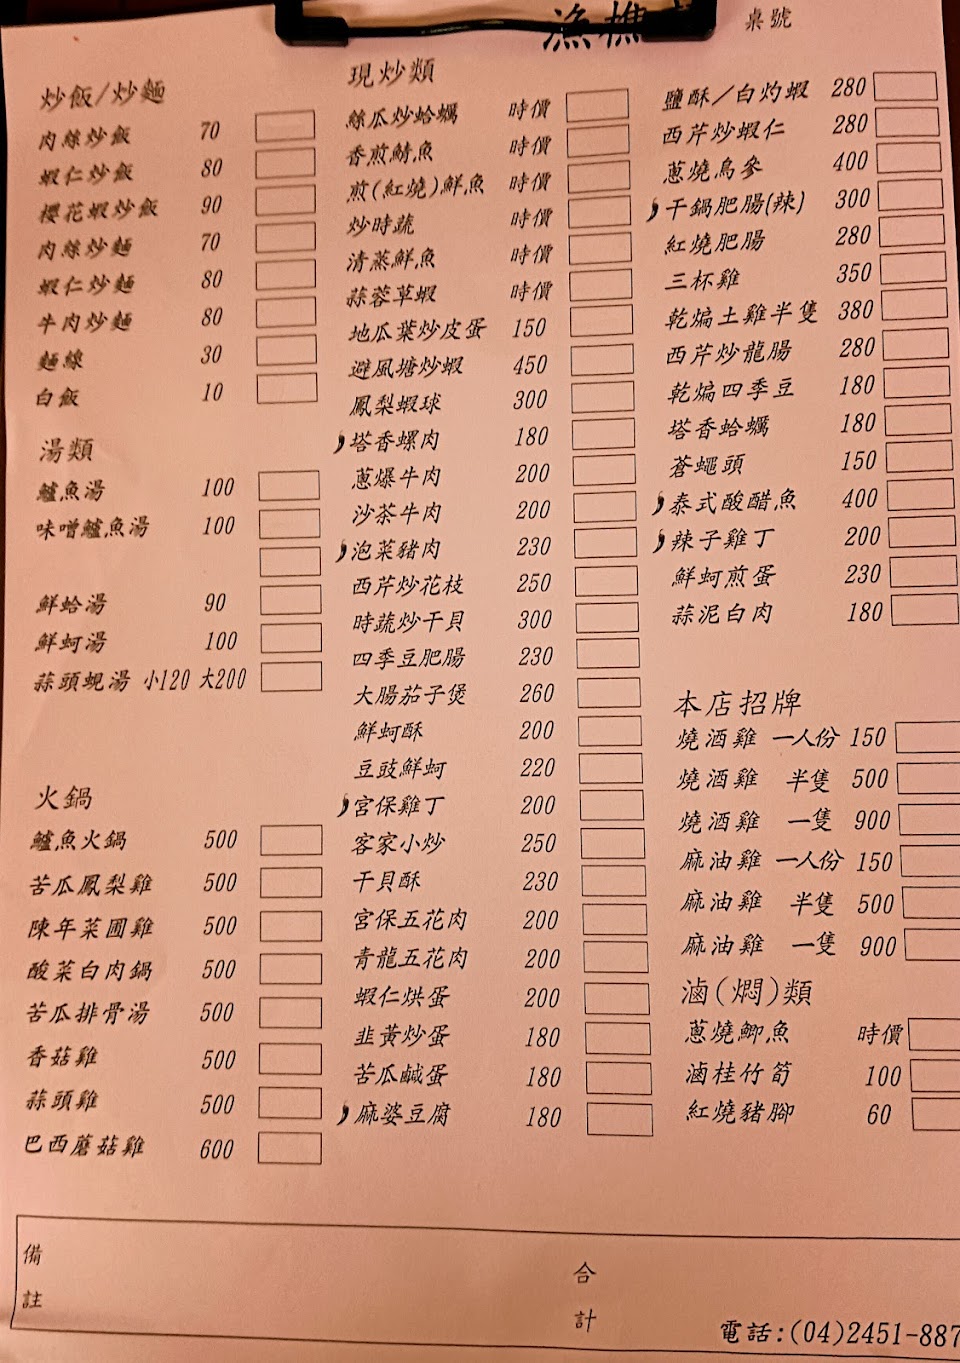 漁樵
桌號
炒飯/炒麵
肉絲炒飯 70
蝦仁炒飯 80
櫻花蝦炒飯 90
肉絲炒麵 70
蝦仁炒麵 80
牛肉炒麵 80
麵線 30
白飯 10
湯類
鱸魚湯 100
味噌鱸魚湯 100
鮮蛤湯 90
鮮蚵湯 100
蒜頭蜆湯 小120 大200
火鍋
鱸魚火鍋 500
苦瓜鳳梨雞 500
陳年菜圃雞 500
酸菜白肉鍋 500
苦瓜排骨湯 500
香菇雞 500
蒜頭雞 500
巴西蘑菇雞 600
現炒類
絲瓜炒蛤蠣 時價
香煎鯖魚 時價
煎(紅燒)鮮魚 時價
炒時蔬 時價
清蒸鮮魚 時價
蒜蓉草蝦 時價
地瓜葉炒皮蛋 150
避風塘炒蝦 450
鳳梨蝦球 300
塔香螺肉 180
蔥爆牛肉 200
沙茶牛肉 200
泡菜豬肉 230
西芹炒花枝 250
時蔬炒干貝 300
四季豆肥腸 230
大腸茄子煲 260
鮮蚵酥 200
豆豉鮮蚵 220
宮保雞丁 200
客家小炒 250
干貝酥 230
宮保五花肉 200
青龍五花肉 200
蝦仁烘蛋 200
韭黃炒蛋 180
苦瓜鹹蛋 180
麻婆豆腐 180
鹽酥／白灼蝦 280
西芹炒蝦仁 280
蔥燒烏參 400
干鍋肥腸(辣) 300
紅燒肥腸 280
三杯雞 350
乾煸土雞半隻 380
西芹炒龍腸 280
乾煸四季豆 180
塔香蛤蠣 180
蒼蠅頭 150
泰式酸醋魚 400
辣子雞丁 200
鮮蚵煎蛋 230
蒜泥白肉 180
本店招牌
燒酒雞 一人份 150
燒酒雞 半隻 500
燒酒雞 一隻 900
麻油雞 一人份 150
麻油雞 半隻 500
麻油雞 一隻 900
滷(燜)類
蔥燒鯽魚 時價
滷桂竹筍 100
紅燒豬腳 60
備註
合計
電話:(04)2451-887